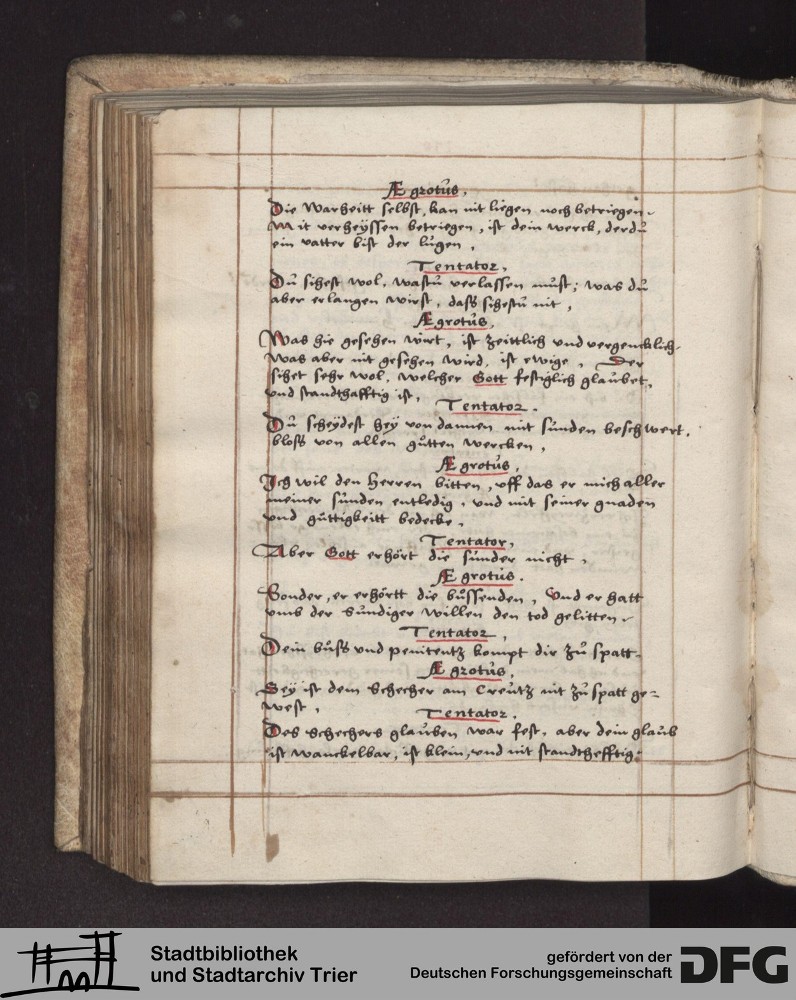 Ægrotus.
Die Warheitt selbst, kan nit liegen noch betriegen.
Mit verheÿssen betriegen, ist dein werck, der dŭ
ein vatter bist der lŭgen,
Tentator,
Dŭ sihest wol, wastŭ verlassen mŭst; was dŭ
aber erlangen wirst, dass sihestŭ nit,
Ægrotŭs,
Was hie gesehen wirt, ist zeittlich vnd vergencklich.
Was aber nit gesehen wird, ist ewige, Der
sihet sehr wol, welcher Gott festiglich glaŭbet,
vnd standthafftig ist,
Tentator.
Dŭ scheÿdest heÿ von dannen mit sŭnden beschwert,
bloss von allen gŭtten wercken,
Ægrotŭs,
Ich wil den Herren bitten, vff das er mich aller
meiner sŭnden entledig, vnd mit seiner gnaden
vnd gŭttigkeitt bedecke,
Tentator,
Aber Gott erhört die sŭnder nicht,
Ægrotŭs.
Sonder, er erhörtt die bŭssenden, Vnd er hatt
vmb der Sŭndiger willen den tod gelitten.
Tentator,
Dein bŭss vnd penitentz kompt dir zŭ spatt.
Ægrotŭs,
Seÿ ist dem Schecher am Creŭtz nit zŭ spatt ge=
west,
Tentator.
Des Schechers glaŭben war fest, aber dein glaŭb
ist wanckelbar, ist klein, vnd nit standthefftig.
Stadtbibliothek
und Stadtarchiv Trier
gefördert von der
Deutschen Forschungsgemeinschaft
DFG